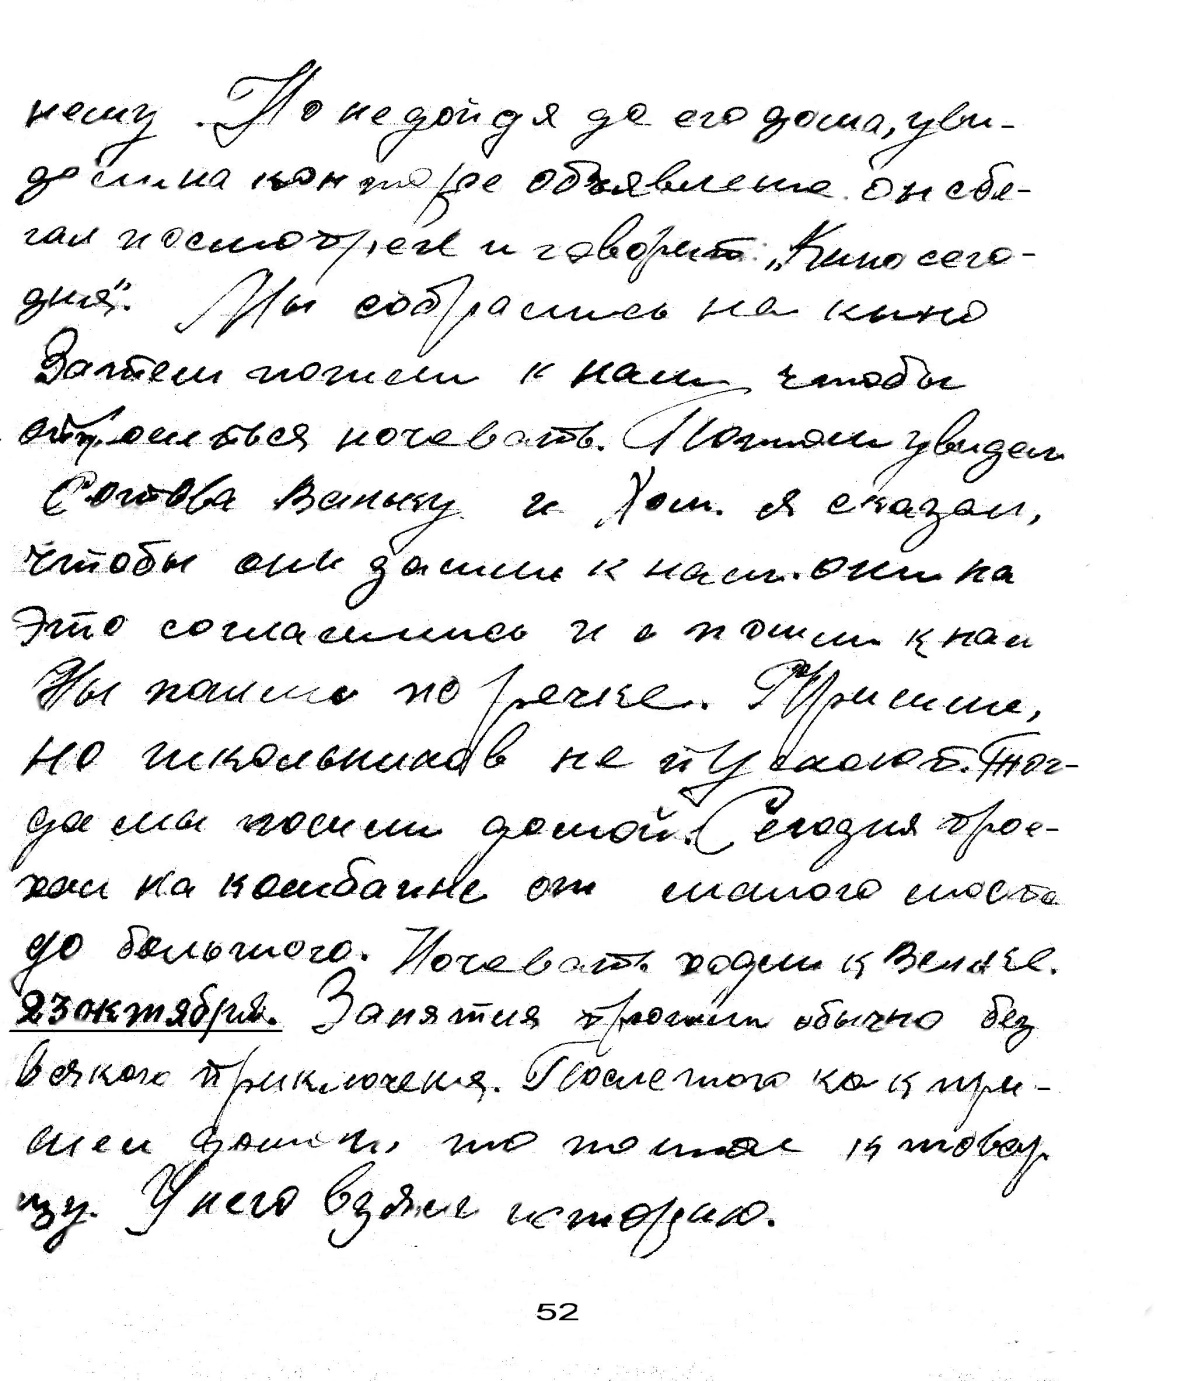 нему. Но не дойдя до его дома, уви-
дали на конторе объявление. он сбе-
гал посмотрел и говорит: „Кино сего-
дня“. Мы собрались на кино
Затем пошли к нам, чтобы
отпроситься ночевать. Потом увидел
Сотова Ваньку и Хом. я сказал,
чтобы они зашли к нам. они на
это согласились и пошли к нам
Мы пошли по речке. Пришли,
но школьников не пускают. Тог-
да мы пошли домой. Сегодня прое-
хал на комбайне от малого моста
до большого. Ночевать ходил к Веньке.
23 октября. Занятия прошли обычно без
всякого приключения. После того как при-
шел домой, то пошел к товар
щу. У него взял историю.
52